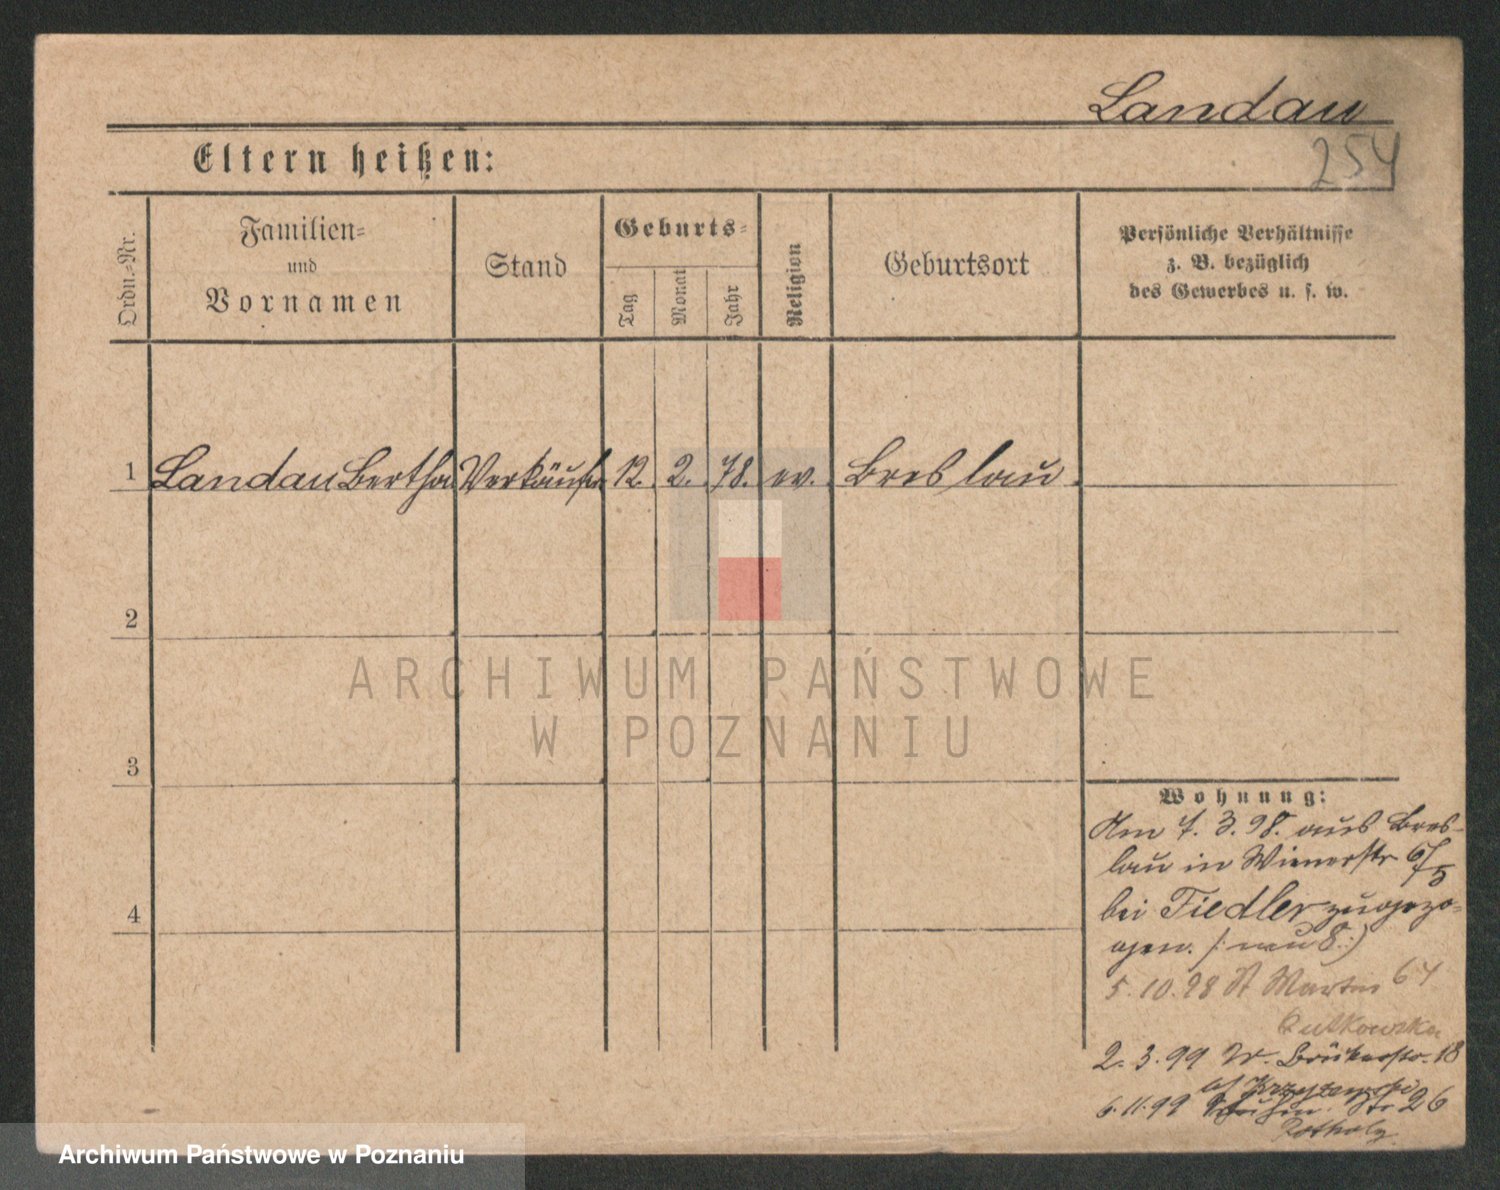 Landau
254
Eltern heißen:
Ordn.-Nr.
Familien-
und
Vornamen
Stand
Geburts-
Tag
Monat
Jahr
Religion
Geburtsort
Persönliche Verhältnisse
z. B. bezüglich
des Gewerbes u. s. w.
1 Landau Bertha Verkäufn 12. 2. 78. ev. Breslau
2
3
4
Wohnung:
Am 7. 3. 98. aus Bres-
lau in Wienerstr 6/5
bei Fiedler zugezo-
gen. (: neu 8:)
5. 10. 98 St Martin 64
Rutkowska
2. 3. 99 W. Brükerstr. 18
bf Krzyzewski
6. 11. 99 Str 26
Rotholz
ARCHIWUM PAŃSTWOWE
W POZNANIU
Archiwum Państwowe w Poznaniu